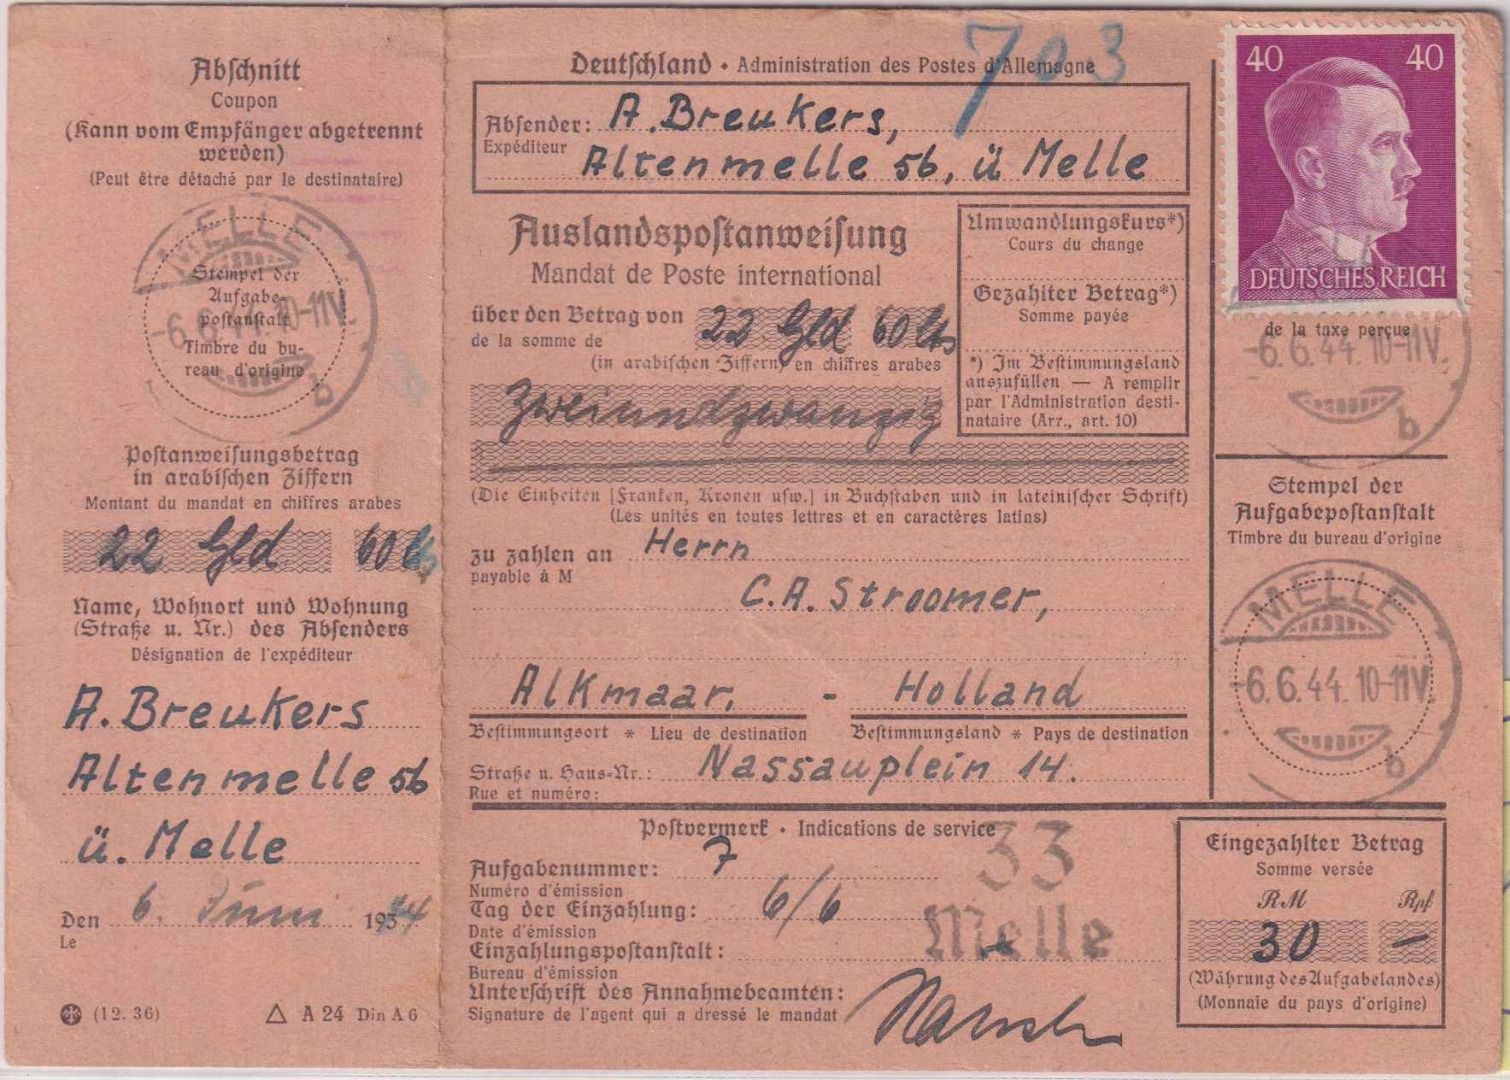 Abschnitt
Coupon
(Kann vom Empfänger abgetrennt
werden)
(Peut être détaché par le destinataire)
MELLE
Stempel der
Aufgabe-
postanstalt
-6.6.44.10-11V.
Timbre du bu-
reau d'origine
b
Postanweisungsbetrag
in arabischen Ziffern
Montant du mandat en chiffres arabes
22 Gld 60 Cts
Name, Wohnort und Wohnung
(Straße u. Nr.) des Absenders
Désignation de l'expéditeur
A. Breukers
Altenmelle 56
ü. Melle
Den 6. Juni 1944
Le
(12. 36) A 24 Din A 6
Deutschland • Administration des Postes d'Allemagne
703
Absender: A. Breukers,
Expéditeur
Altenmelle 56, ü Melle
Auslandspostanweisung
Mandat de Poste international
über den Betrag von 22 Gld 60 Cts
de la somme de
(in arabischen Ziffern) en chiffres arabes
Zweiundzwanzig
(Die Einheiten [Franken, Kronen usw.] in Buchstaben und in lateinischer Schrift)
(Les unités en toutes lettres et en caractères latins)
Umwandlungskurs*)
Cours du change
Gezahlter Betrag*)
Somme payée
*) Im Bestimmungsland
auszufüllen — A remplir
par l'Administration desti-
nataire (Arr., art. 10)
zu zahlen an Herrn
payable à M
C.A. Stroomer,
Alkmaar, - Holland
Bestimmungsort * Lieu de destination
Bestimmungsland * Pays de destination
Straße u. Haus-Nr.: Nassauplein 14.
Rue et numéro:
40 40
DEUTSCHES REICH
de la taxe perçue
-6.6.44.10-11V.
b
Stempel der
Aufgabepostanstalt
Timbre du bureau d'origine
MELLE
-6.6.44.10-11V.
b
Postvermerk • Indications de service
Aufgabenummer: 7
Numéro d'émission
Tag der Einzahlung: 6/6
Date d'émission
Einzahlungspostanstalt:
Bureau d'émission
33
Melle
Unterschrift des Annahmebeamten:
Signature de l'agent qui a dressé le mandat
Eingezahlter Betrag
Somme versée
RM Rpf
30 —
(Währung des Aufgabelandes)
(Monnaie du pays d'origine)